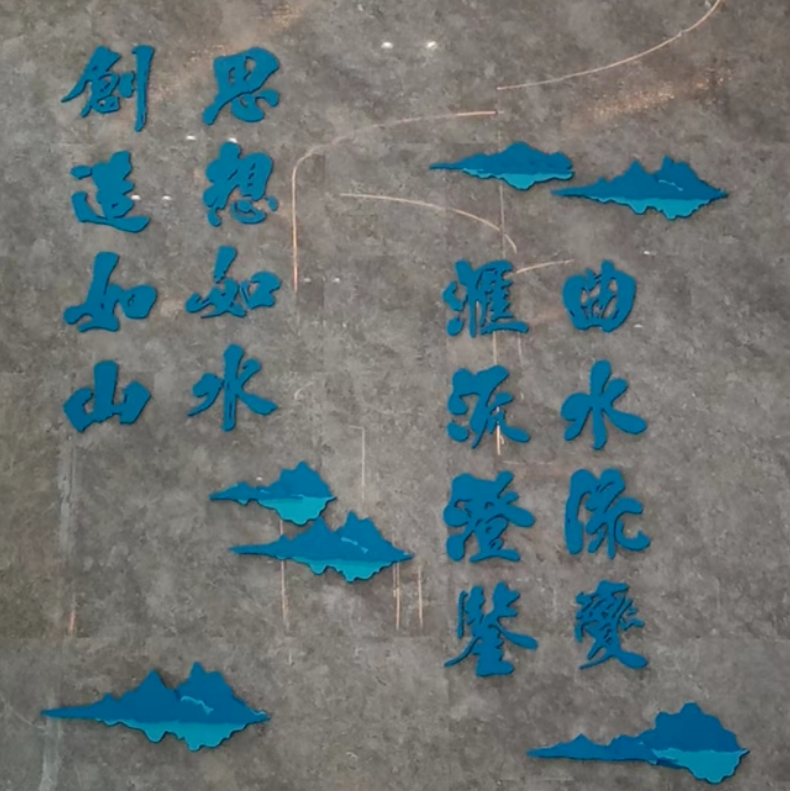 曲水流變
滙流澄鑒
思想如水
創造如山